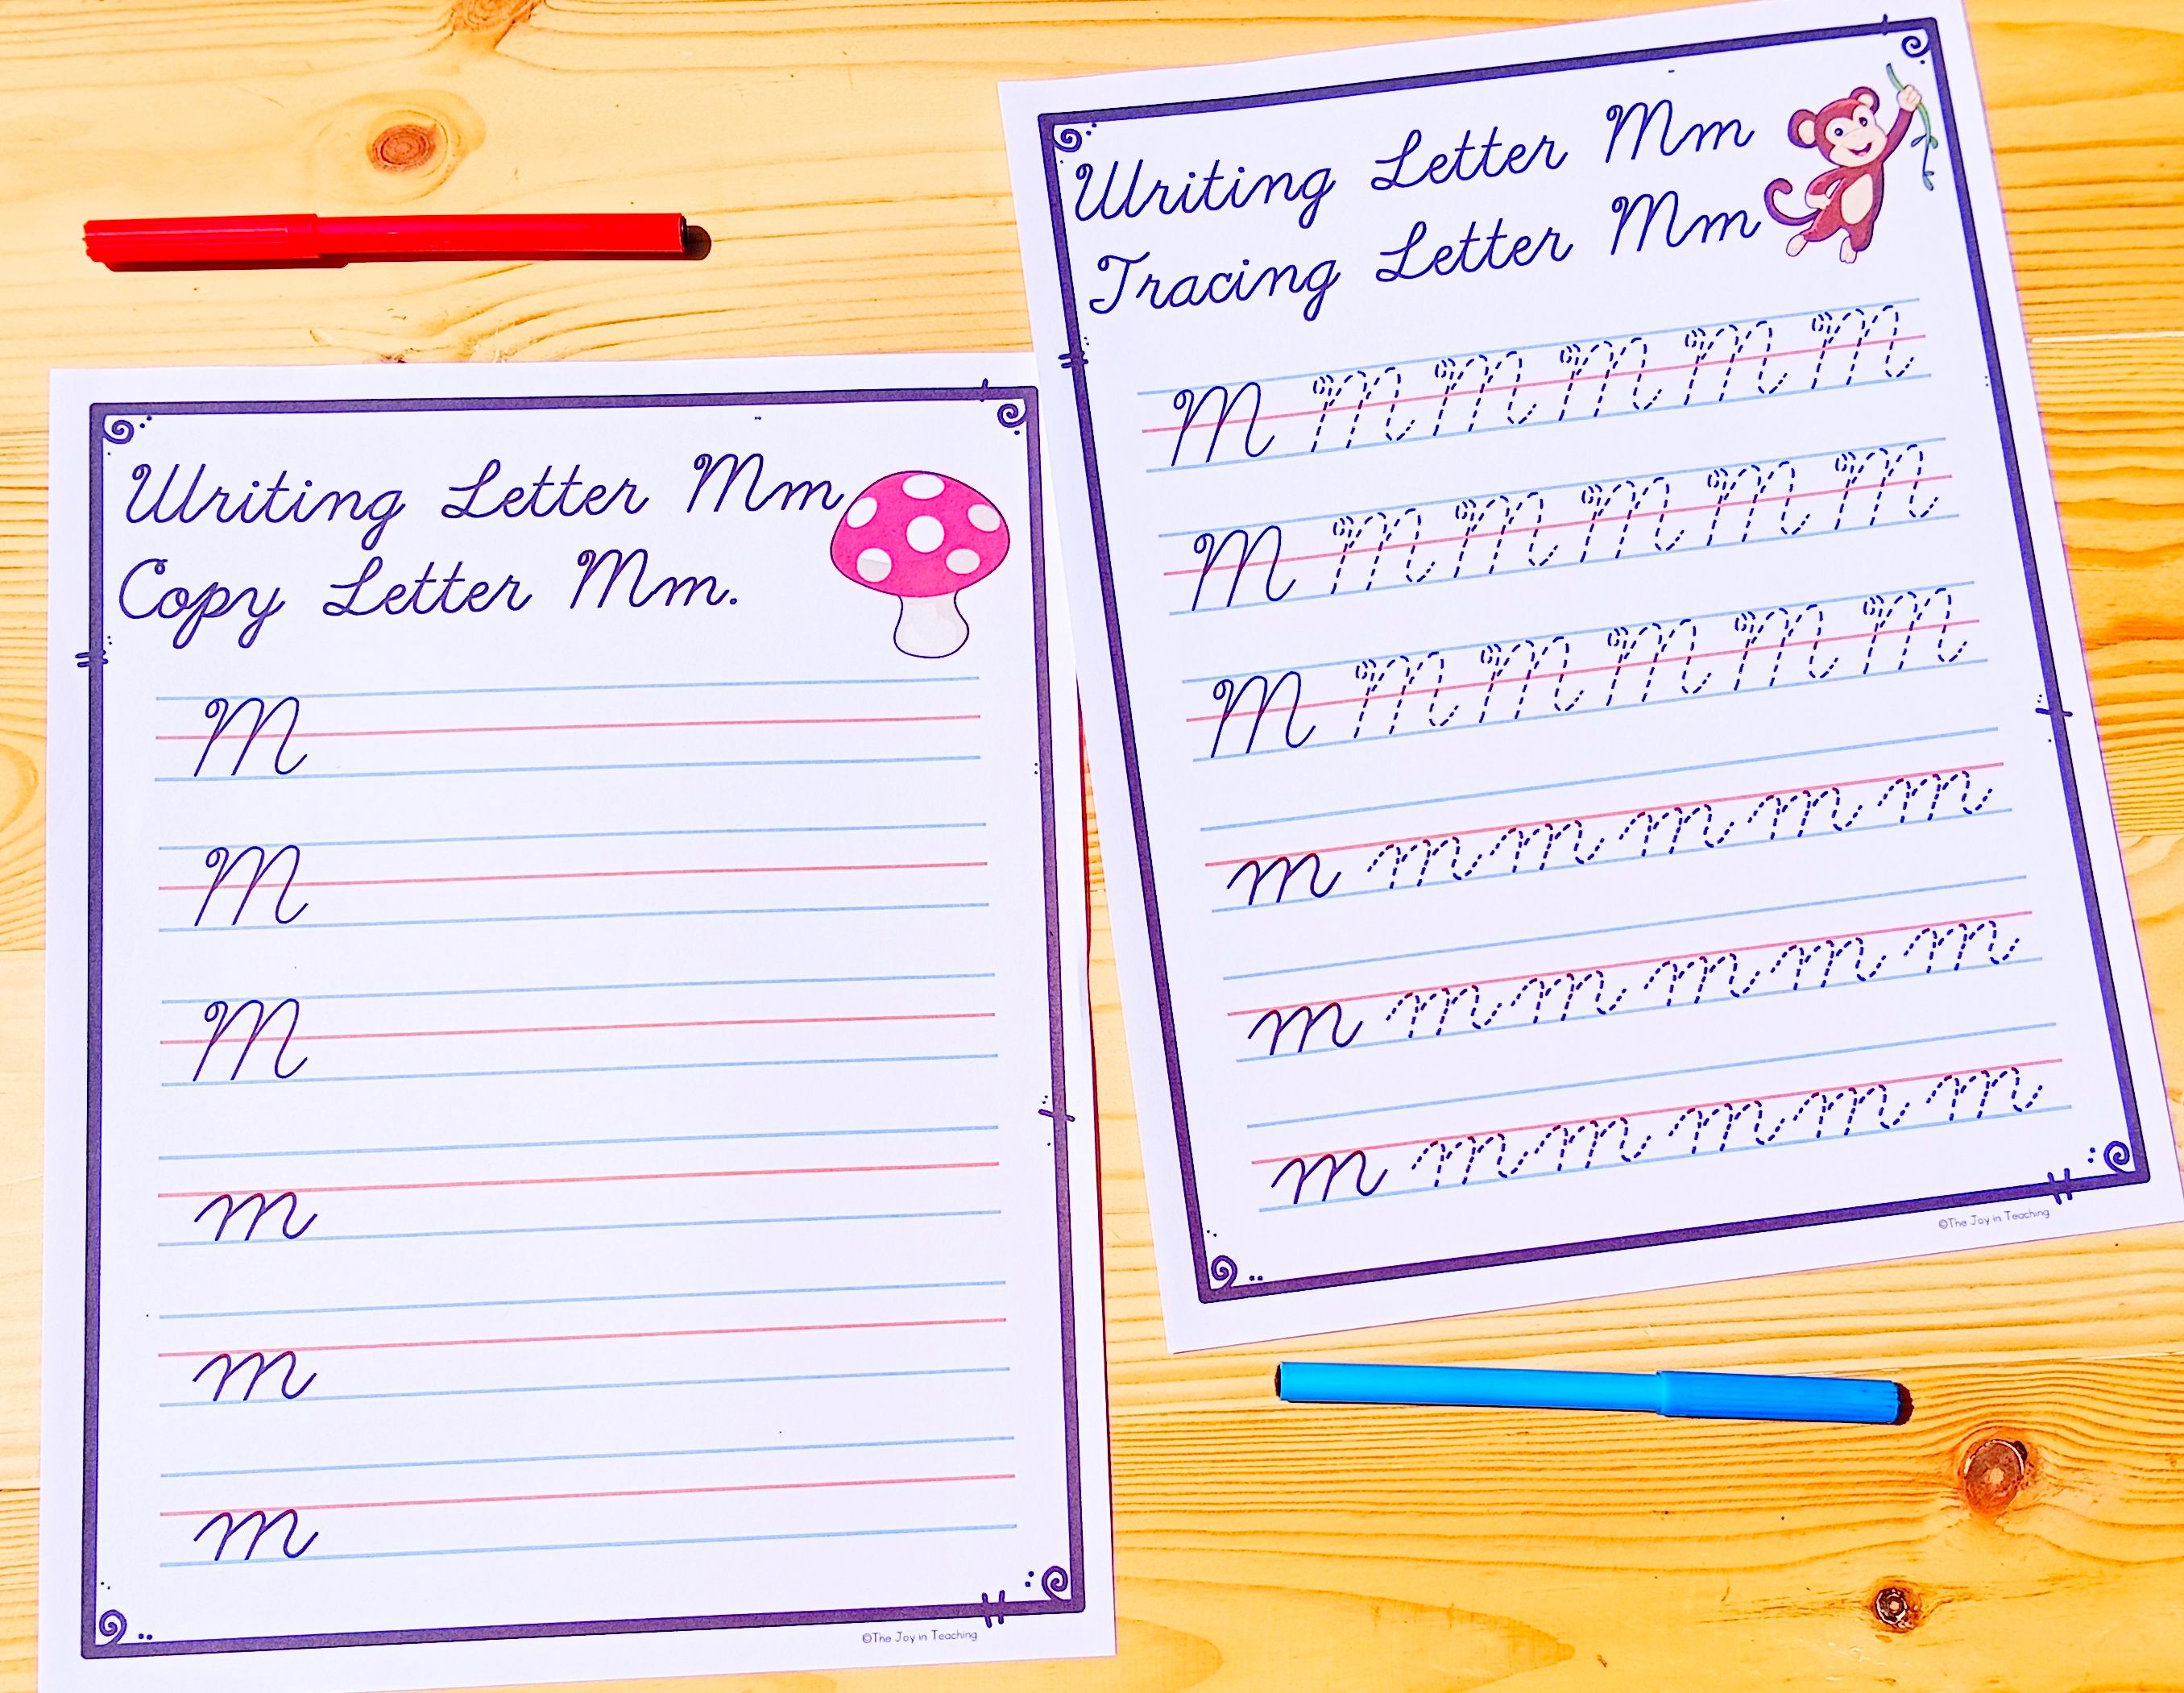 Writing Letter Mm
Copy Letter Mm.
M
M
M
m
m
m
©The Joy in Teaching
Writing Letter Mm
Tracing Letter Mm
M M M M M M
M M M M M M
M M M M M M
m m m m m m
m m m m m m
m m m m m m
©The Joy in Teaching